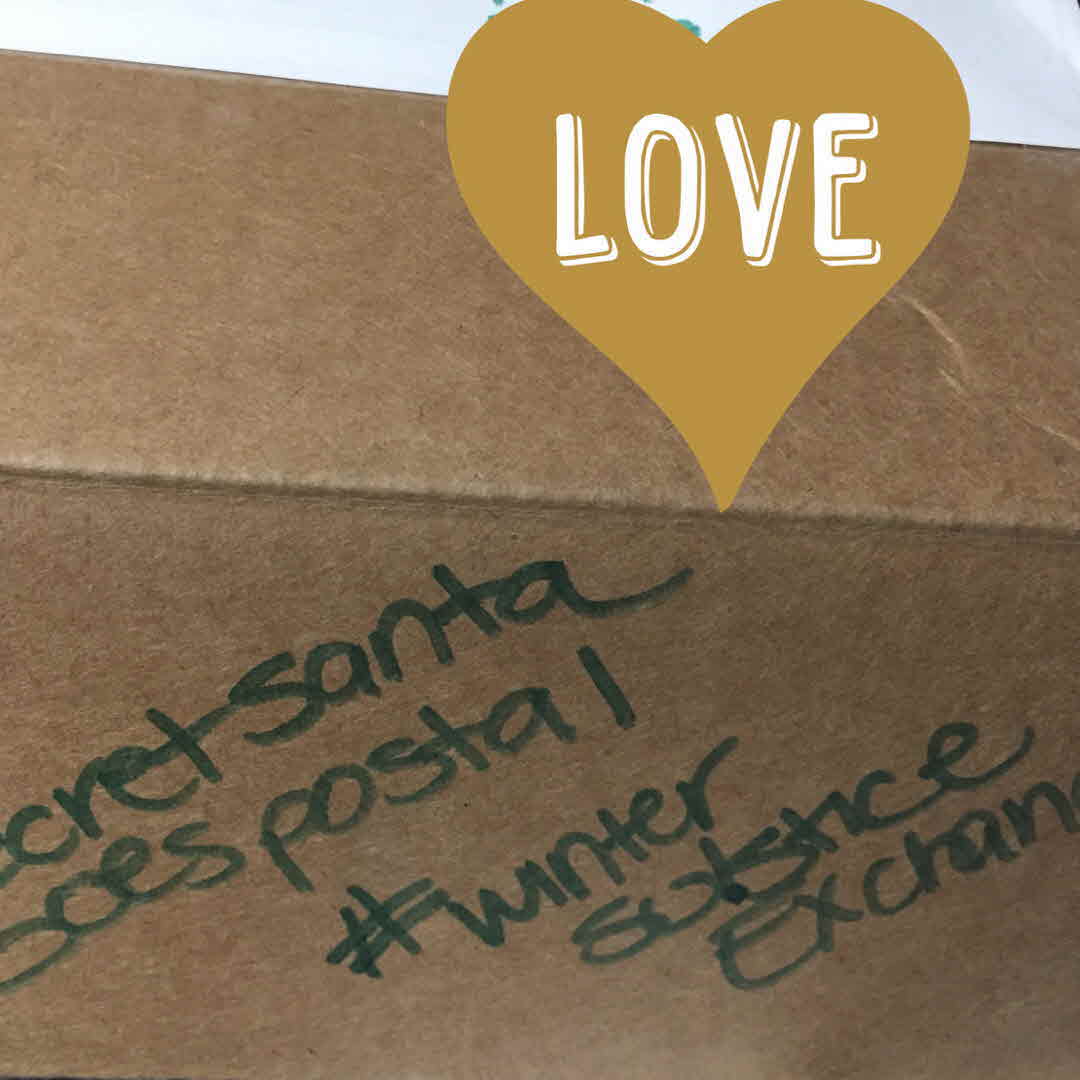 LOVE
ecret santa
Goes postal
#winter
solstice
Exchang